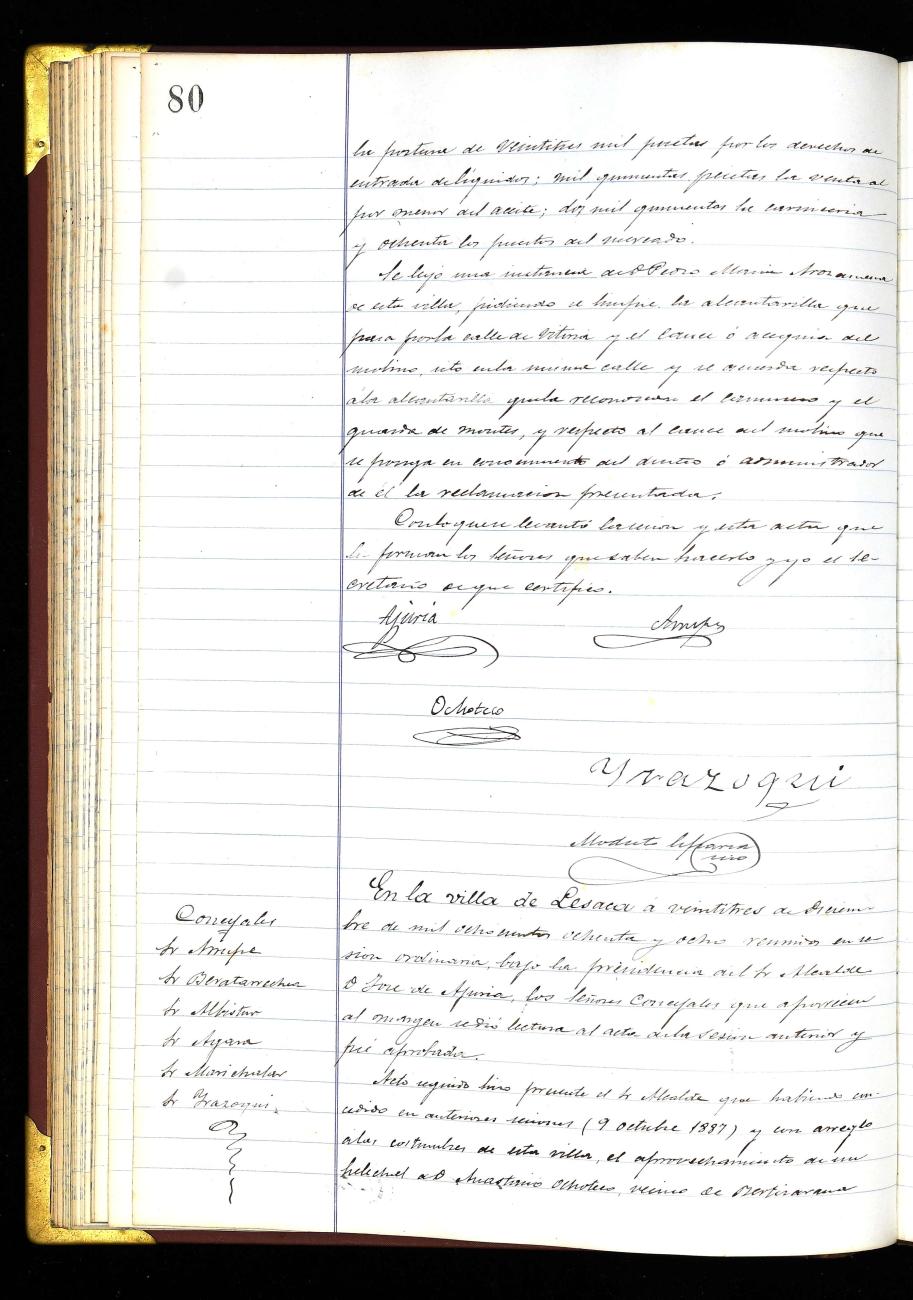 80
la postura de Veintitres mil pesetas por los derechos de
entrada de liquidos; mil quinientas pesetas la venta al
por menor del aceite; dos mil quinientos la carniceria
y ochenta los puestos del mercado.
Se leyó una instancia de D Pedro Maria Arozamena
de esta villa, pidiendo se limpie la alcantarilla que
pasa por la calle de Vitoria y el cauce ó acequia del
molino, sito en la misma calle y se acuerda respecto
á la alcantarilla que la reconozcan el caminero y el
guarda de montes, y respecto al cauce del molino que
se ponga en conocimiento del dueño ó administrador
de él la reclamacion presentada.
Con lo que se levantó la sesion y esta acta que
la firman los Señores que saben hacerlo y yo el Se-
cretario de que certifico.
Ajuria
Arrupe
Ochoteco
Yrazoqui
Modesto
En la villa de Lesaca a veintitres de Diciem-
Concejales
bre de mil ochocientos ochenta y ocho reunidos en se-
Sr Arrupe
sion ordinaria, bajo la presidencia del Sr Alcalde
Sr Beratarrechea
D José de Ajuria, los Señores Concejales que aparecen
Sr Albistur
al margen se dió lectura al acta de la Sesion anterior y
Sr Apara
fué aprobada.
Sr Marichalar
Acto seguido hizo presente el Sr Alcalde que habiendo con-
Sr Irazoqui
cedido en anteriores sesiones (9 octubre 1887) y con arreglo
a las costumbres de esta villa, el aprovechamiento de un
helechal a D Anastasio Ochoteco, vecino de Bertizarana